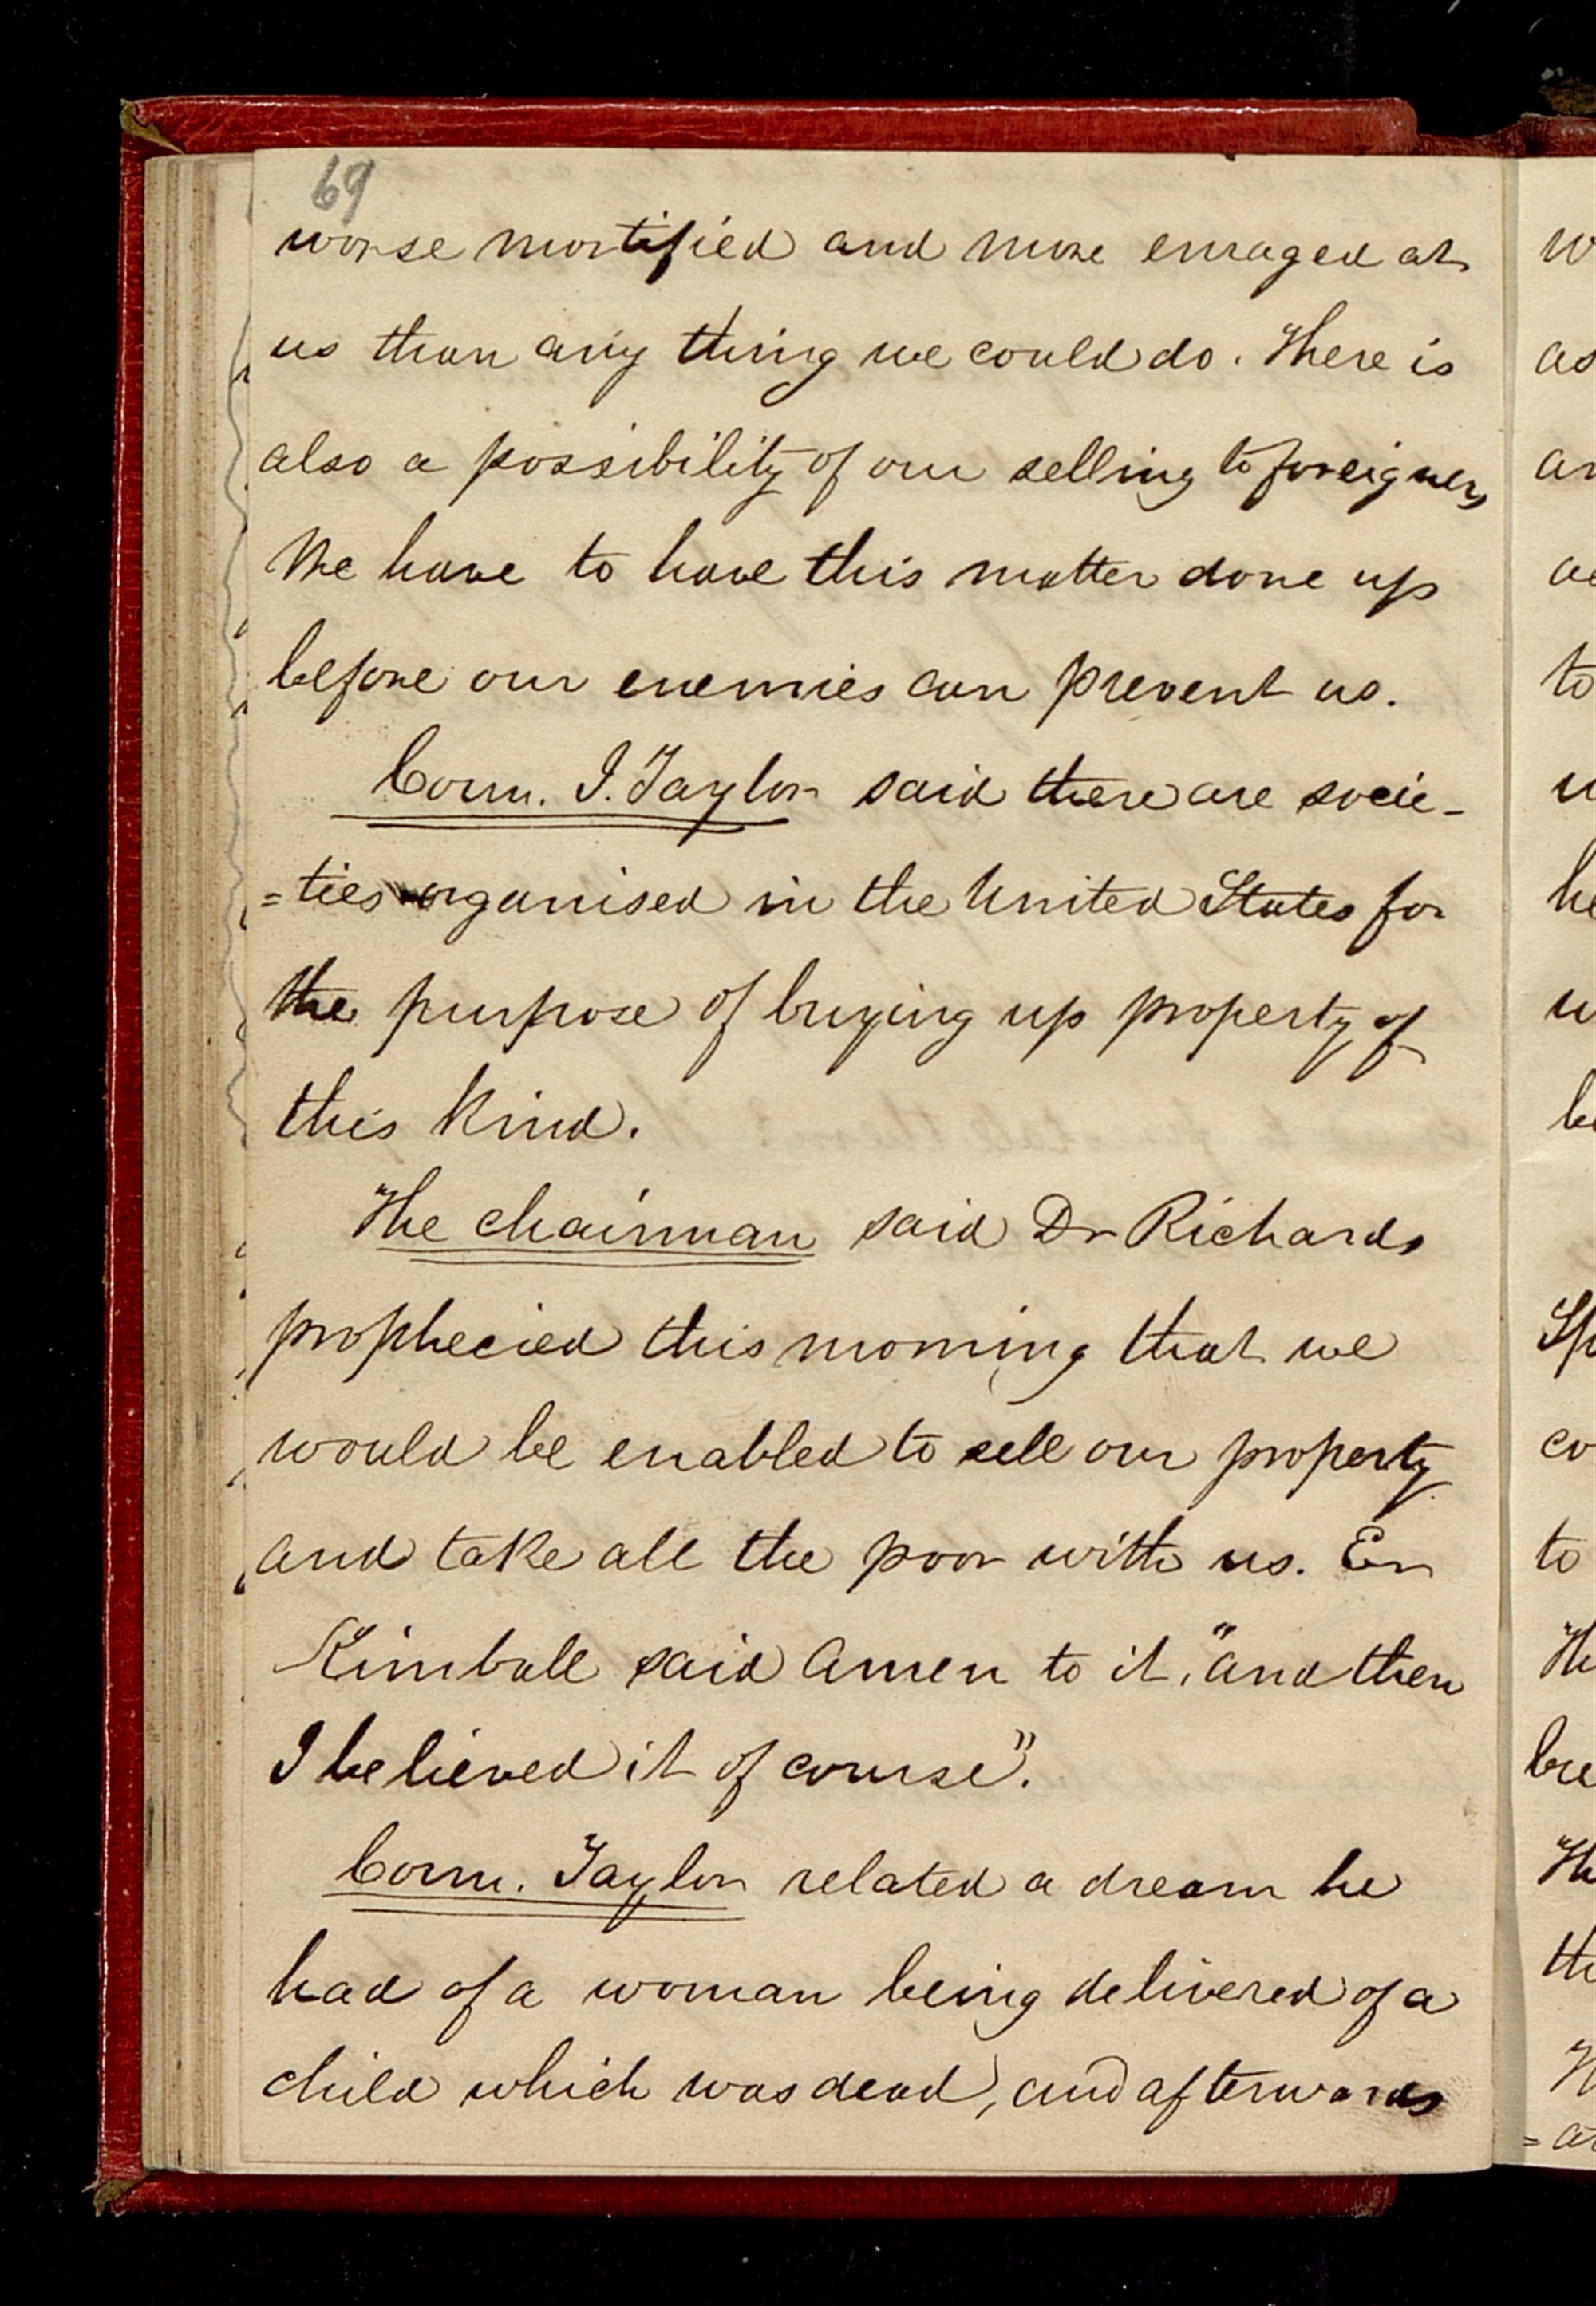 69
worse mortified and more enraged at
us than any thing we could do. There is
also a possibility of our selling to foreigners
We have to have this matter done up
before our enemies can prevent us.
Com. J. Taylor said there are socie-
=ties organised in the United States for
the purpose of buying up property of
this kind.
The chairman said Dr Richards
prophecied this morning that we
would be enabled to sell our property
and take all the poor with us. Er
Kimball said Amen to it, "and then
I believed it of course".
Com. Taylor related a dream he
had of a woman being delivered of a
child which was dead, and afterwards